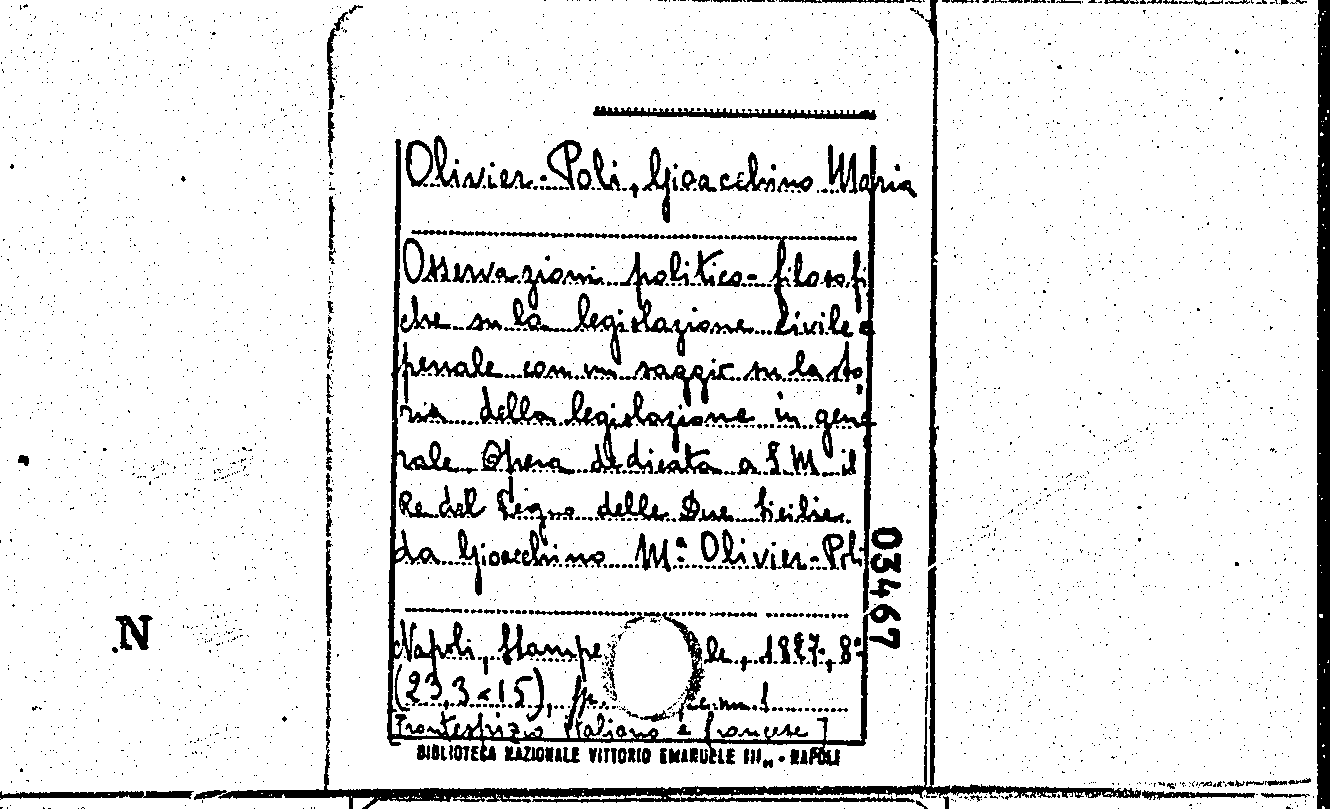 Olivier-Poli, Gioacchino Maria
Osservazioni politico-filosofi
che su la legislazione civile e
penale con un saggio su la sto
ria della legislazione in gene
rale Opera dedicata a S. M. il
Re del Regno delle Due Sicilie
da Gioacchino Mª Olivier-Poli
Napoli, Stampe le, 1827, 8°
(23,3×15), pp.
[Frontespizio italiano e francese]
BIBLIOTECA NAZIONALE VITTORIO EMANUELE III„ - NAPOLI
03467
N